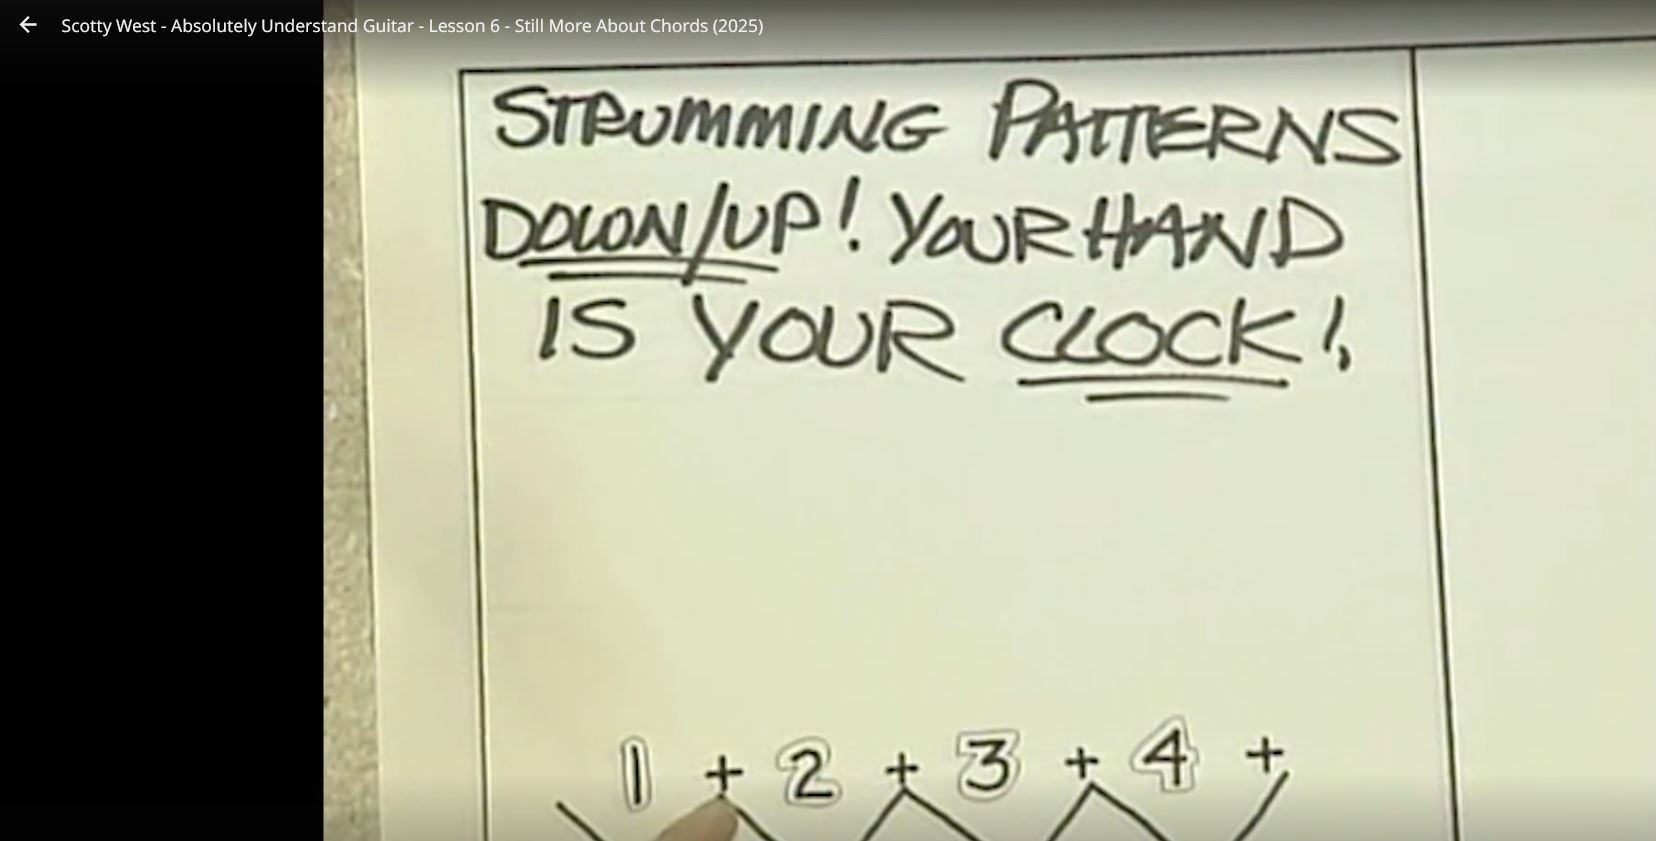 Scotty West - Absolutely Understand Guitar - Lesson 6 - Still More About Chords (2025)
STRUMMING PATTERNS
DOWN/UP! YOUR HAND
IS YOUR CLOCK!
1 + 2 + 3 + 4 +